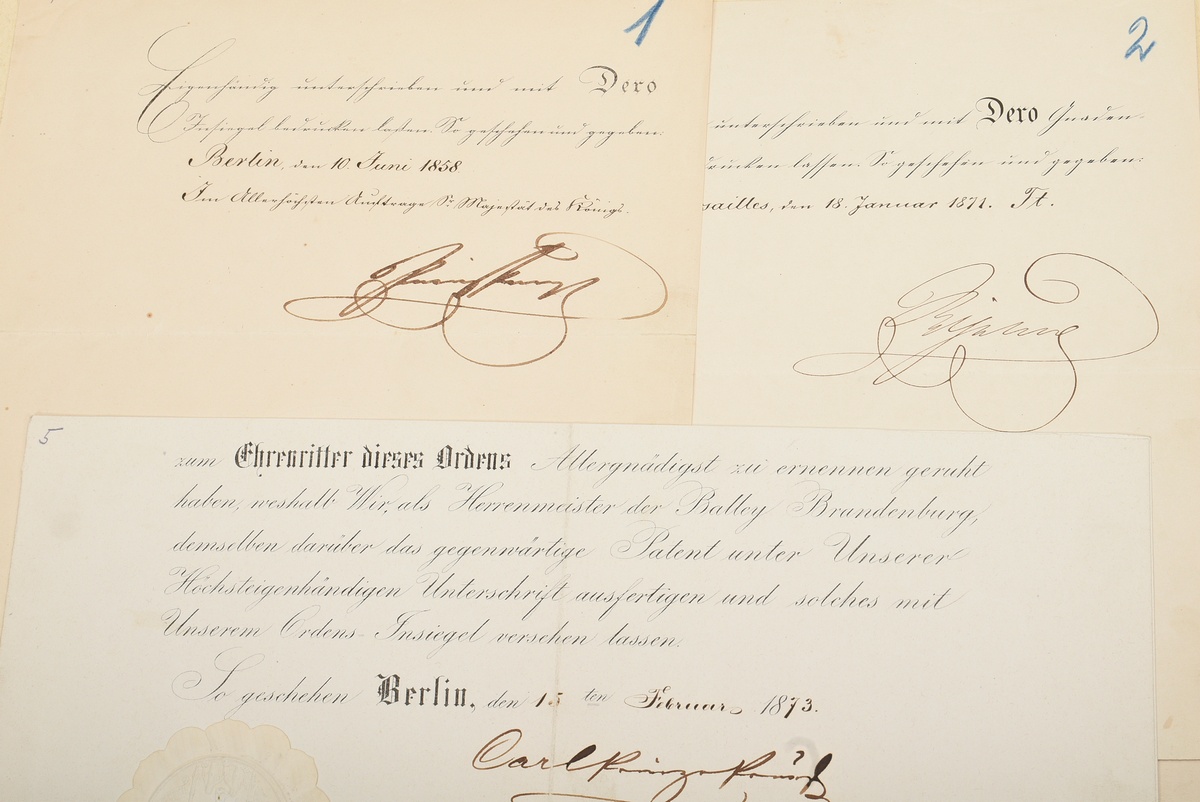 1
Eigenhändig unterschrieben und mit Dero
Insiegel bedrucken lassen. So geschehen und gegeben:
Berlin, den 10. Juni 1858
Im Allerhöchsten Auftrage Sr. Majestät des Königs.
2
unterschrieben und mit Dero Gnaden-
drucken lassen. So geschehen und gegeben:
sailles, den 18. Januar 1871.
5
zum Ehrenritter dieses Ordens Allergnädigst zu ernennen geruht
haben, weshalb Wir, als Herrenmeister der Balley Brandenburg,
demselben darüber das gegenwärtige Patent unter Unserer
Höchsteigenhändigen Unterschrift ausfertigen und solches mit
Unserem Ordens-Insiegel versehen lassen.
So geschehen Berlin, den 15 ten Februar 1873.
Carl Prinz v Preußen